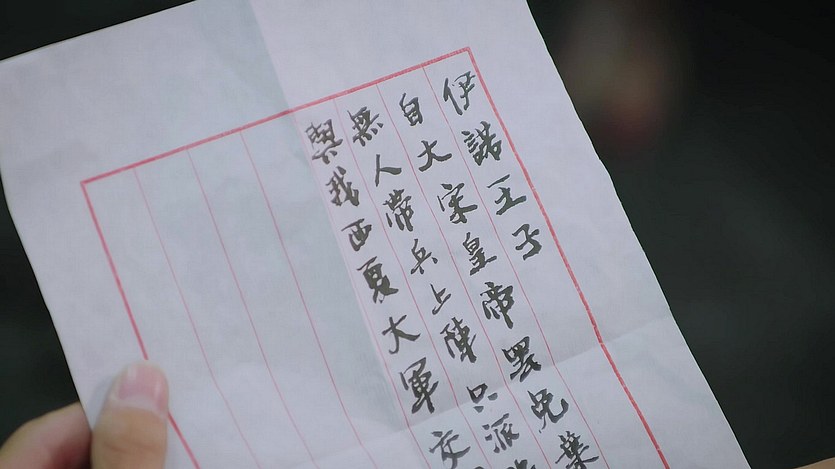 伊諾王子
自大宋皇帝罢免葉
無人帶兵上陣只派
與我西夏大軍交